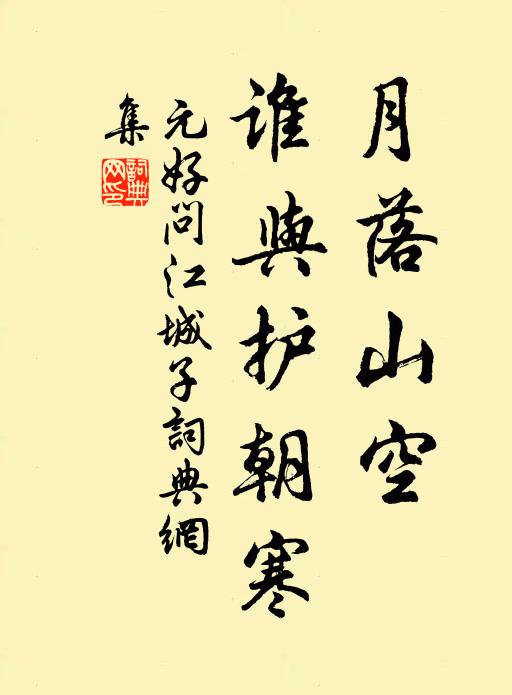 月落山空
誰與护朝寒
元好问江城子詞典網
集
詞典网印